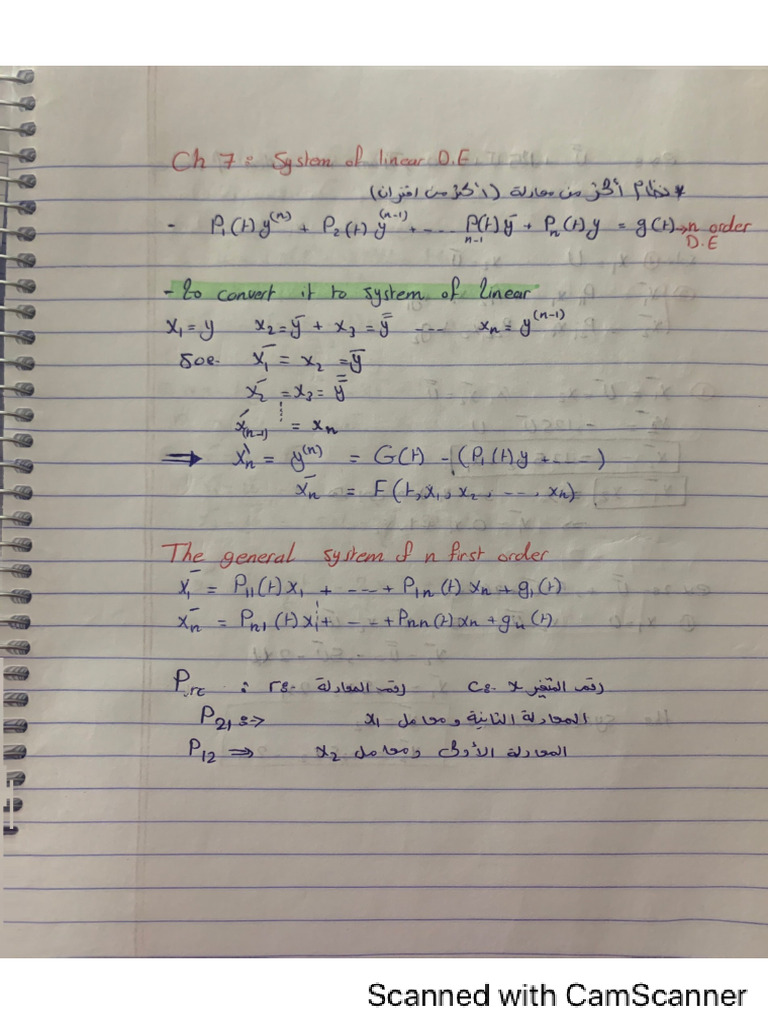 Ch 7 : System of linear D.E
* نظام أكثر من معادلة (أكثر من اقتران)
- P₁(t) y⁽ⁿ⁾ + P₂(t) y⁽ⁿ⁻¹⁾ + .... P(t)ȳ + Pₙ(t) y = g(t) → n order
n-1
D.E
- to convert it to system of linear
x₁ = y x₂ = ȳ + x₃ = y̿ .... xₙ = y⁽ⁿ⁻¹⁾
Soe. x̄₁ = x₂ = ȳ
x̄₂ = x₃ = y̿
x́₍ₙ₋₁₎ = xₙ
⇒ xₙ̀ = y⁽ⁿ⁾ = G(t) - (P₁(t) y + ....)
x̄ₙ = F(t, x₁, x₂, ..., xₙ)
The general system of n first order
x̄₁ = P₁₁(t) x₁ + ... + P₁ₙ(t) xₙ + g₁(t)
x̄ₙ = Pₙ₁(t) x₁ + ... + Pₙₙ(t) xₙ + gₙ(t)
P.rc : r:- رقم المعادلة c:- x رقم المتغير
P₂₁ :⇒ المعادلة الثانية ومعامل x₁
P₁₂ ⇒ المعادلة الأولى ومعامل x₂
Scanned with CamScanner